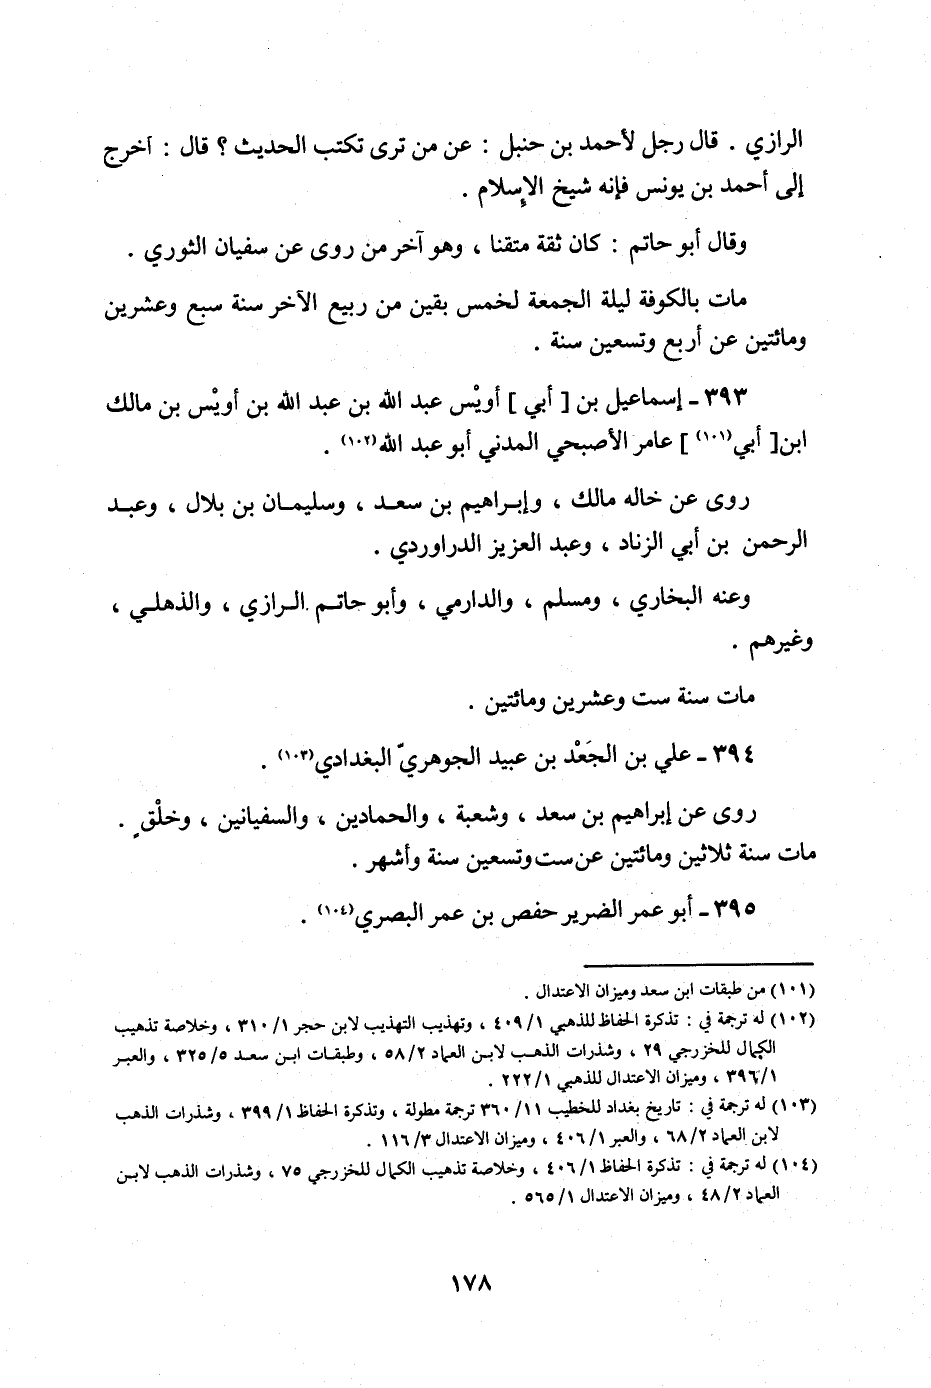 الرازي . قال رجل لأحمد بن حنبل : عن من ترى تكتب الحديث ؟ قال : أخرج
إلى أحمد بن يونس فإنه شيخ الإسلام .
وقال أبو حاتم : كان ثقة متقنا ، وهو آخر من روى عن سفيان الثوري .
مات بالكوفة ليلة الجمعة لخمس بقين من ربيع الآخر سنة سبع وعشرين
ومائتين عن أربع وتسعين سنة .
٣٩٣ ـ إسماعيل بن [ أبي ] أويْس عبد الله بن عبد الله بن أويْس بن مالك
ابن [ أبي(١٠١) ] عامر الأصبحي المدني أبو عبد الله(١٠٢) .
روى عن خاله مالك ، وإبراهيم بن سعد ، وسليمان بن بلال ، وعبد
الرحمن بن أبي الزناد ، وعبد العزيز الدراوردي .
وعنه البخاري ، ومسلم ، والدارمي ، وأبو حاتم الرازي ، والذهلي ،
وغيرهم .
مات سنة ست وعشرين ومائتين .
٣٩٤ ـ علي بن الجَعْد بن عبيد الجوهريّ البغدادي(١٠٣) .
روى عن إبراهيم بن سعد ، وشعبة ، والحمادين ، والسفيانين ، وخلْقٍ .
مات سنة ثلاثين ومائتين عن ست وتسعين سنة وأشهر .
٣٩٥ ـ أبو عمر الضرير حفص بن عمر البصري(١٠٤) .
(١٠١) من طبقات ابن سعد وميزان الاعتدال .
(١٠٢) له ترجمة في : تذكرة الحفاظ للذهبي ٤٠٩/١ ، وتهذيب التهذيب لابن حجر ٣١٠/١ ، وخلاصة تذهيب
الكمال للخزرجي ٢٩ ، وشذرات الذهب لابن العماد ٥٨/٢ ، وطبقات ابن سعد ٣٢٥/٥ ، والعبر
٣٩٦/١ ، وميزان الاعتدال للذهبي ٢٢٢/١ .
(١٠٣) له ترجمة في : تاريخ بغداد للخطيب ٣٦٠/١١ ترجمة مطولة ، وتذكرة الحفاظ ٣٩٩/١ ، وشذرات الذهب
لابن العماد ٦٨/٢ ، والعبر ٤٠٦/١ ، وميزان الاعتدال ١١٦/٣ .
(١٠٤) له ترجمة في : تذكرة الحفاظ ٤٠٦/١ ، وخلاصة تذهيب الكمال للخزرجي ٧٥ ، وشذرات الذهب لابن
العماد ٤٨/٢ ، وميزان الاعتدال ٥٦٥/١ .
١٧٨